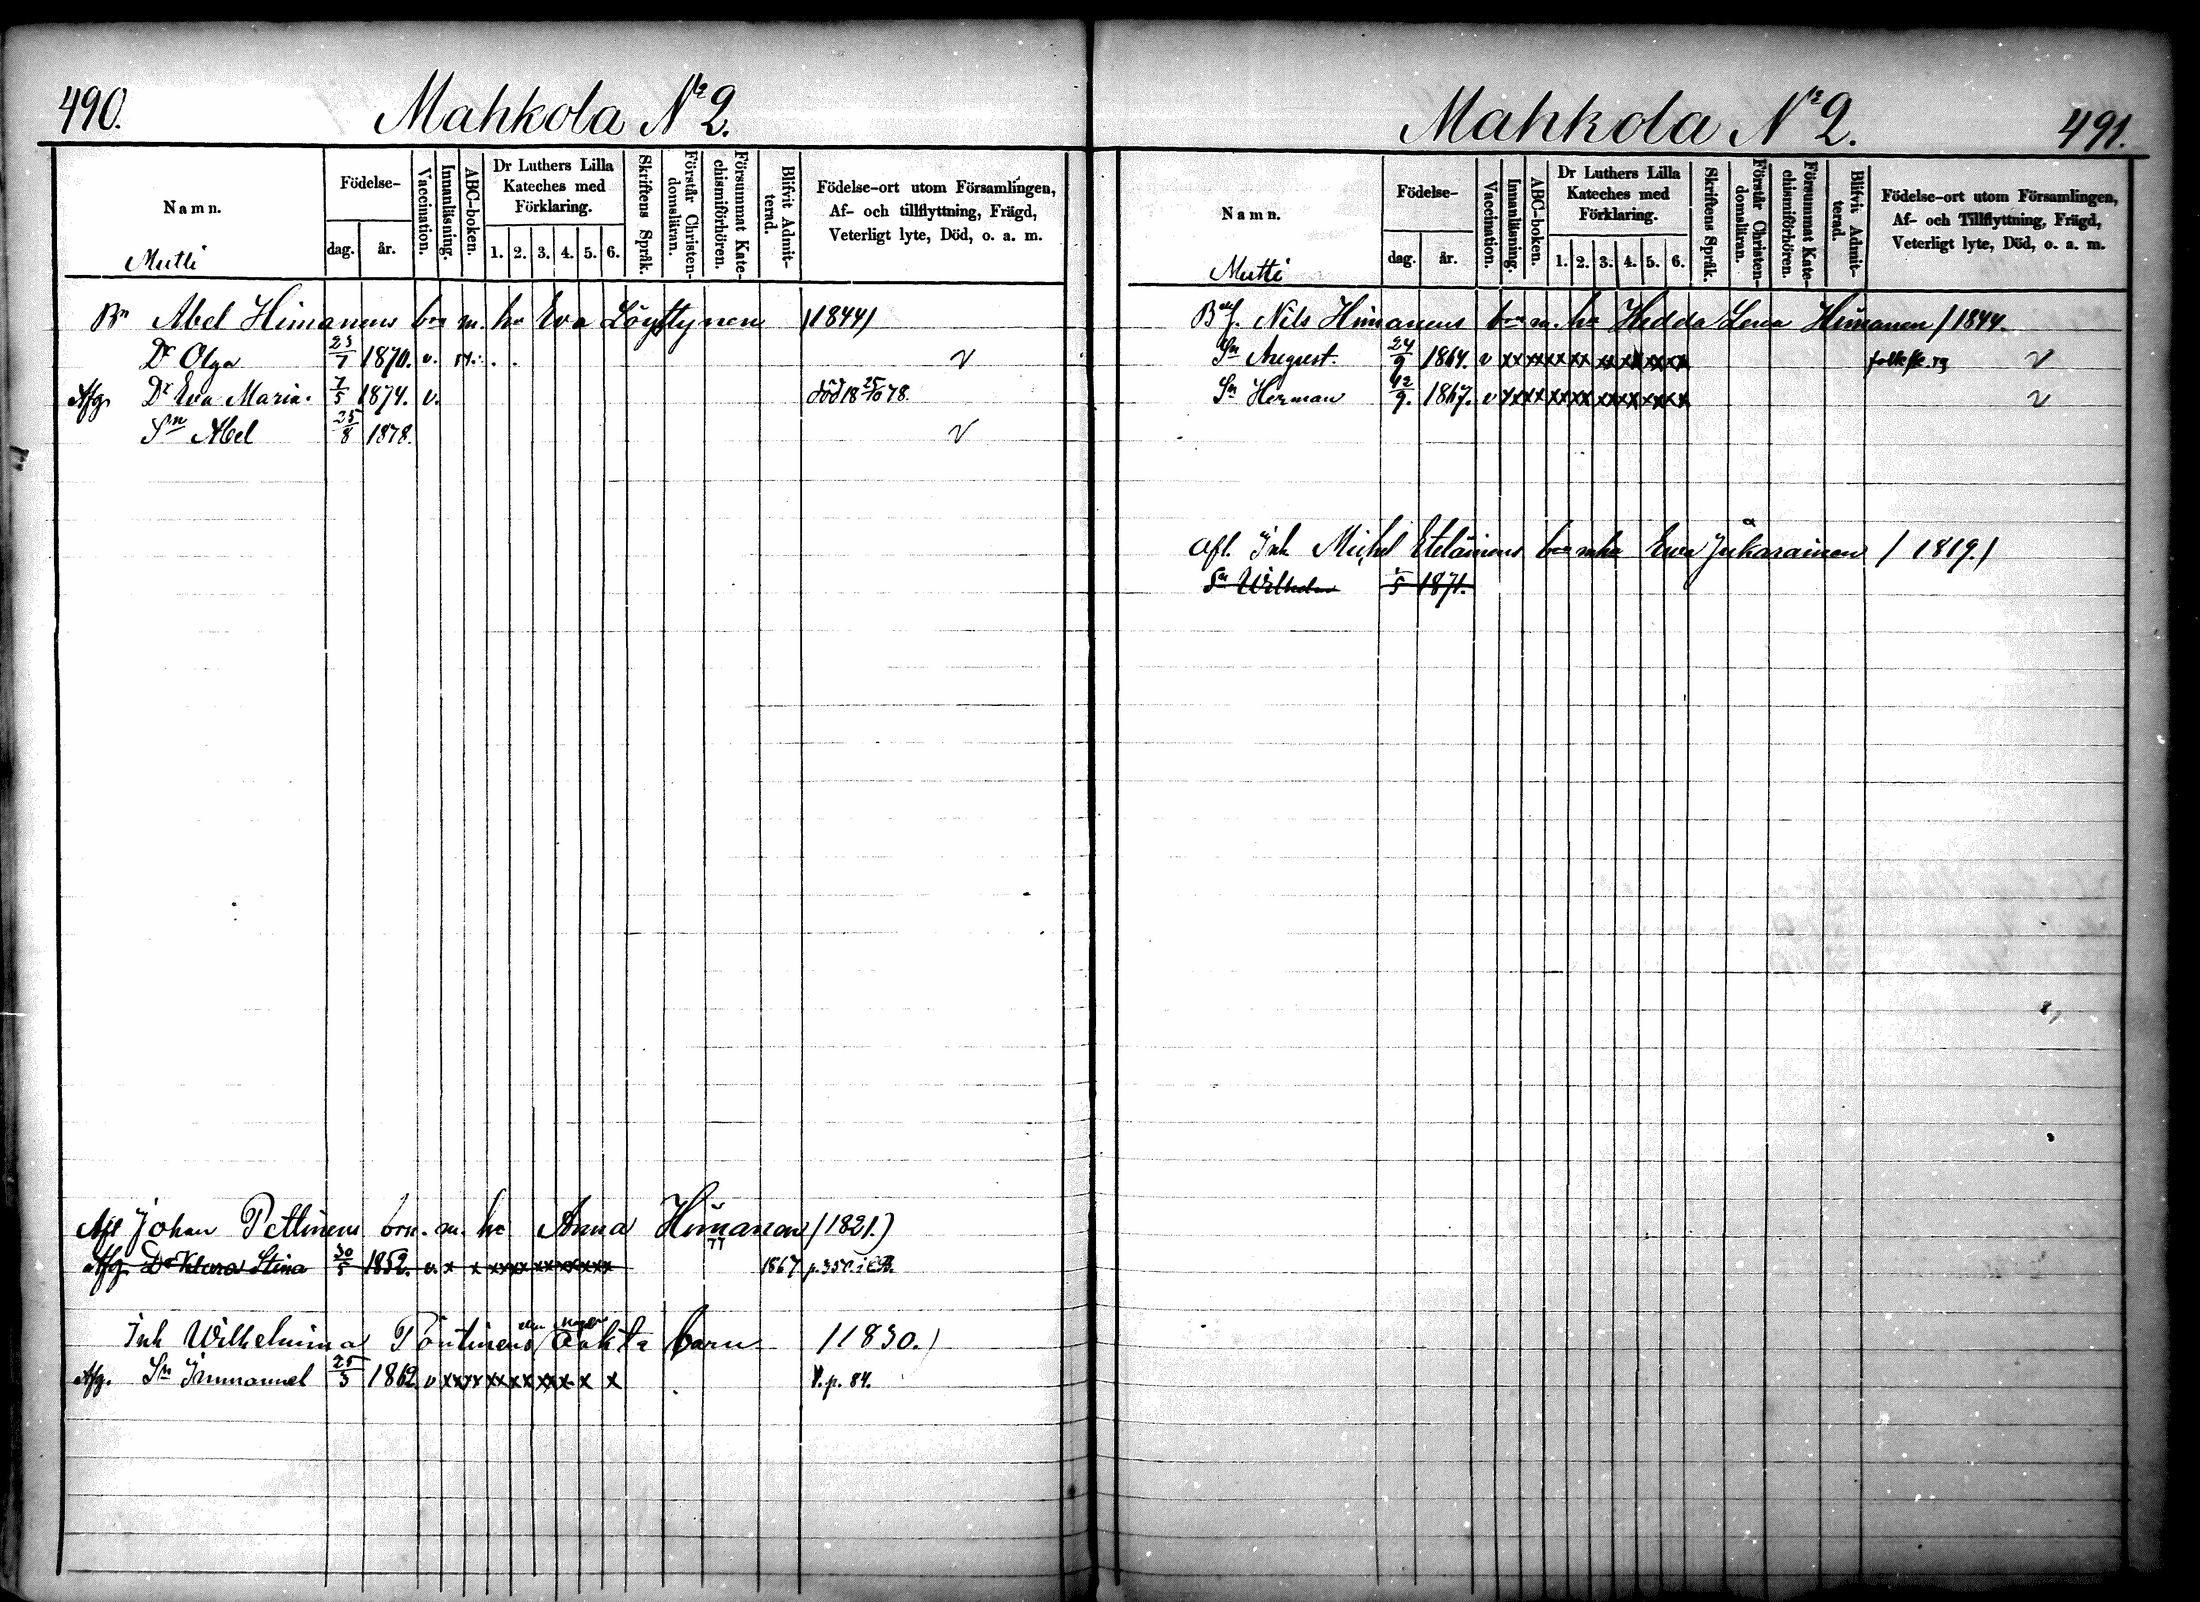 490.
Mahkola Nr 2.
Namn.
Födelse-
dag.
år.
Vaccination.
Innanläsning.
ABC-boken.
Dr Luthers Lilla
Kateches med
Förklaring.
1. 2. 3. 4. 5. 6.
Skriftens Språk.
Förstår Christen-
domsläran.
Försummat Kate-
chismiförhören.
Blifvit Admit-
terad.
Födelse-ort utom Församlingen,
Af- och tillflyttning, Frägd,
Veterligt lyte, Död, o. a. m.
Mutti
Bn Abel Himanens brn m. hu Eva Löyttynen (1844)
Dr Olga 23/7 1870. v.
Afg. Dr Eva Maria. 7/5 1874. v. död 18 25/10 78.
Sn Abel 25/8 1878.
Afl Johan Pettinens brn. m. hu Anna Himanen (1821.)
Afg. Dr Klara Stina 30/5 1852. v. x x xx xx xx xx xx 1867 p. 350
Inh Wilhelmina Pöntinens oäkta barn (1830.)
Afg. Sn Immanuel 25/3 1862 v xx xx xx xx xx x x x V. p. 84.
Mahkola Nr 2.
491.
Namn.
Födelse-
dag.
år.
Vaccination.
Innanläsning.
ABC-boken.
Dr Luthers Lilla
Kateches med
Förklaring.
1. 2. 3. 4. 5. 6.
Skriftens Språk.
Förstår Christen-
domsläran.
Försummat Kate-
chismiförhören.
Blifvit Admit-
terad.
Födelse-ort utom Församlingen,
Af- och Tillflyttning, Frägd,
Veterligt lyte, Död, o. a. m.
Mutti
Nils Himanens brn m. hu Hedda Lena Himanen (1844.
Sn August. 24/9 1864. v xx xx xx xx xx xx xx xx
Sn Herman 12/9. 1867. v xx xx xx xx xx xx xx xx
Afl. Inh Michel Eteläinens brn m hu Ewa Jukarainen (1819.)
Sn Wilhelm 1871.